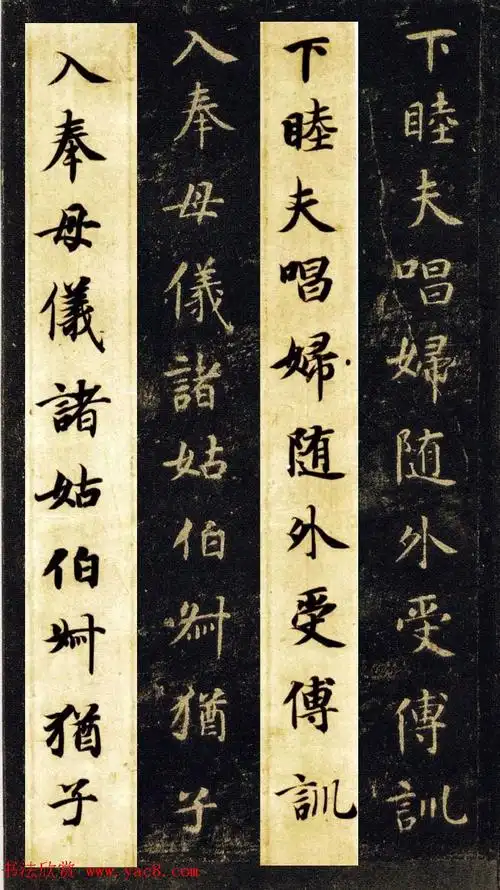 下睦夫唱婦随外受傅訓
下睦夫唱婦随外受傅訓
入奉母儀諸姑伯叔猶子
入奉母儀諸姑伯叔猶子
书法欣赏 www.yac8.com